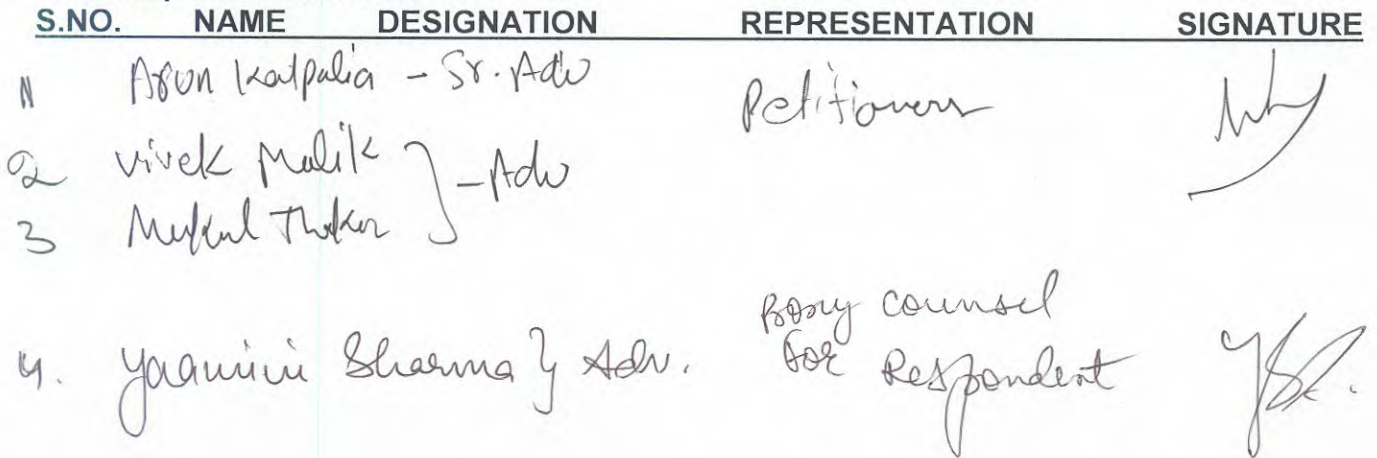 S.NO. NAME DESIGNATION REPRESENTATION SIGNATURE
1 Arun Kalpalia - Sr. Adv Petitioners
2 Vivek Malik } - Adv
3 Mukul
4. Yaamini Sharma } Adv. Proxy counsel
for Respondent